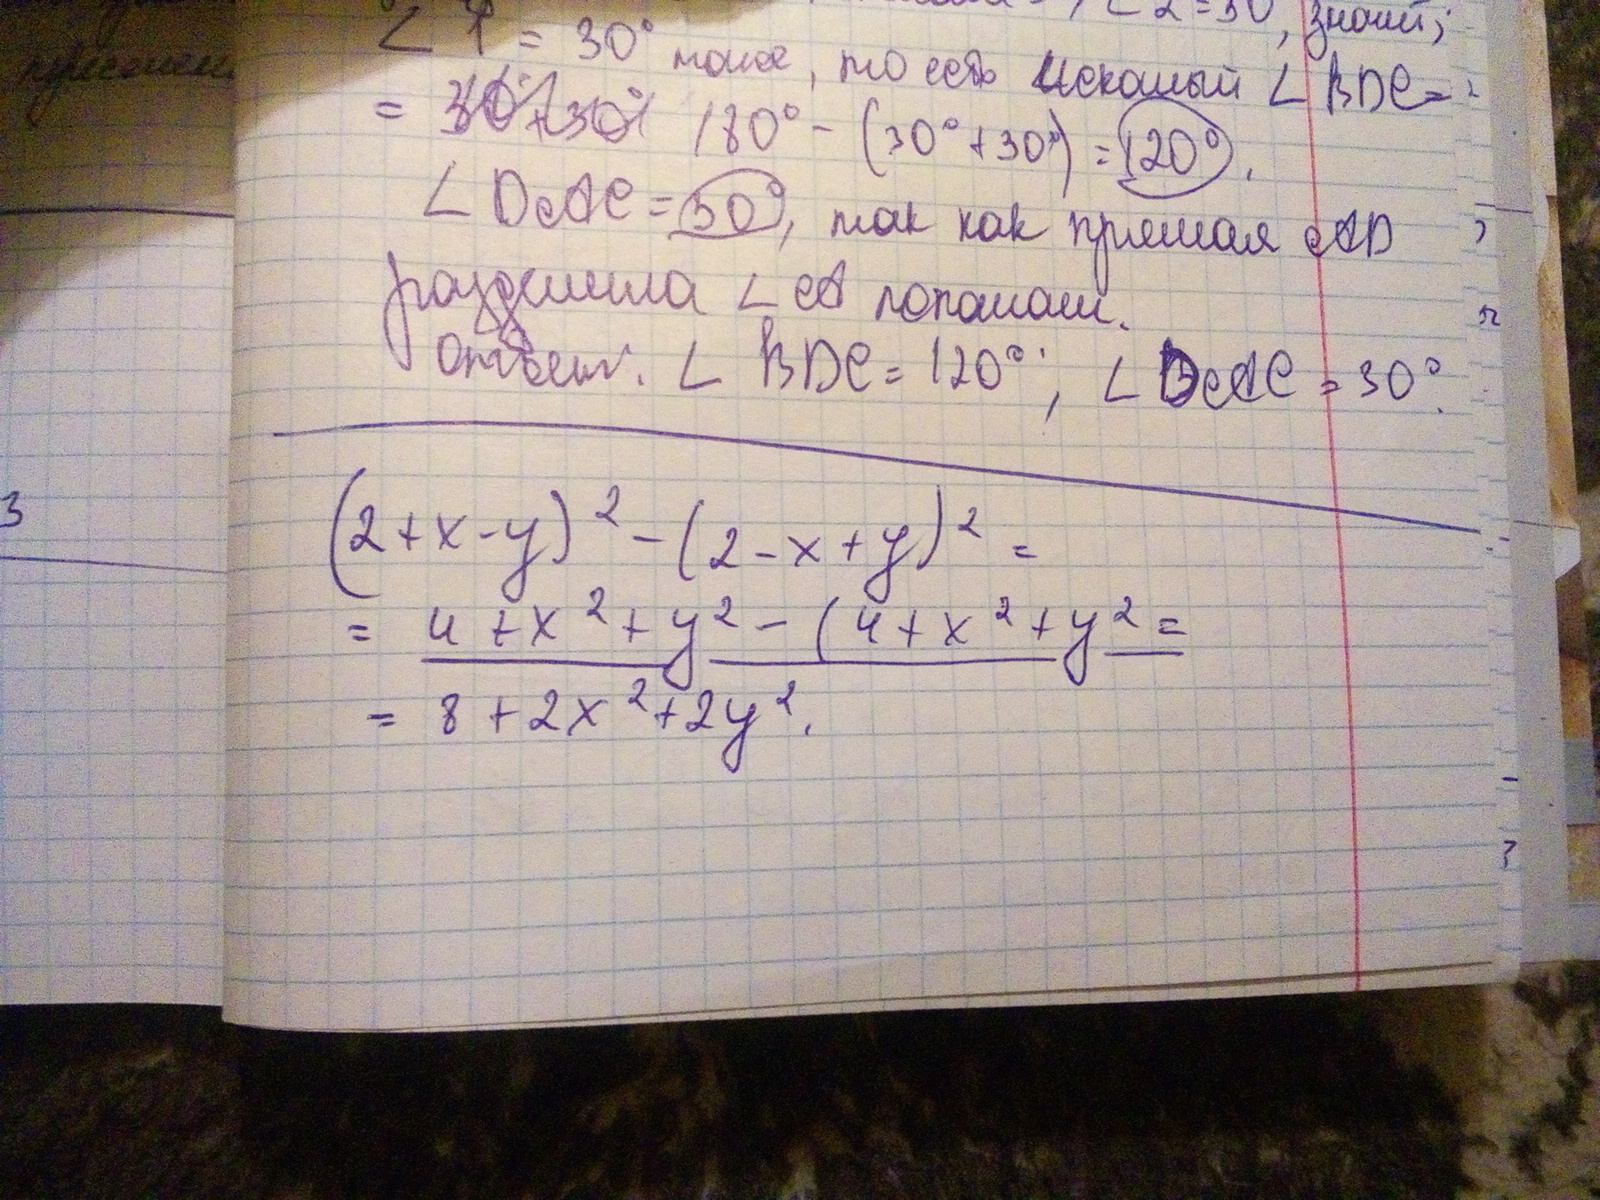 ∠2=30°, значит,
∠1 = 30° тоже, то есть искомый ∠BDC=
= 180° - (30°+30°) = 120°.
∠DAC = 30°, так как прямая AD
разделила ∠A пополам.
Ответ: ∠BDC = 120°; ∠DAC = 30°.
(2+x-y)² - (2-x+y)² =
= 4+x²+y² - (4+x²+y² =
= 8+2x²+2y².
3